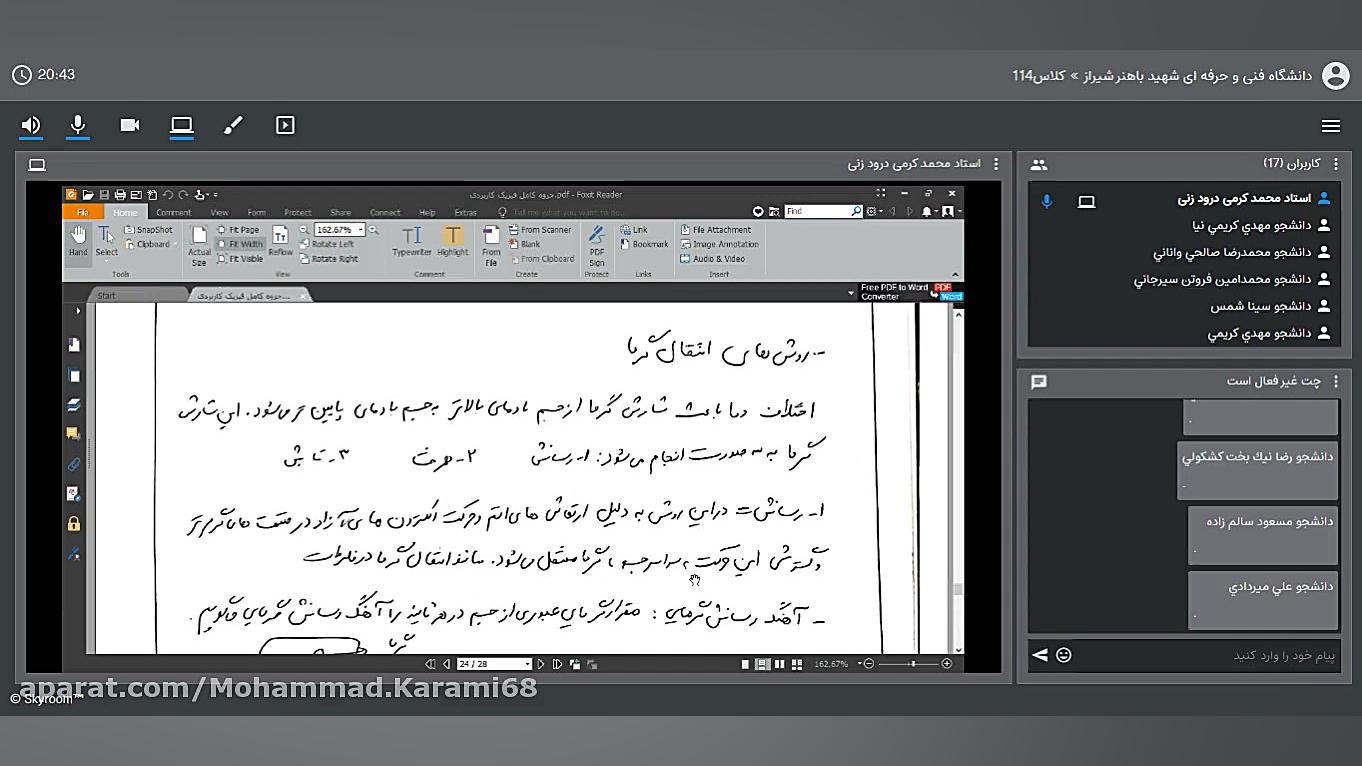 20:43
دانشگاه فنی و حرفه ای شهید باهنر شیراز » کلاس114
استاد محمد کرمی درود زنی
جزوه کامل فیزیک کاربردی.pdf - Foxit Reader
File Home Comment View Form Protect Share Connect Help Extras Tell me what you want to do... Find
Hand
Select
SnapShot
Clipboard
Tools
Actual Size
Fit Page
Fit Width
Fit Visible
Reflow
162.67%
Rotate Left
Rotate Right
View
Typewriter
Highlight
Comment
From File
From Scanner
Blank
From Clipboard
Create
PDF Sign
Protect
Link
Bookmark
Links
File Attachment
Image Annotation
Audio & Video
Insert
Start
جزوه کامل فیزیک کاربردی...
Free PDF to Word Converter
PDF Word
-روش های انتقال گرما
اختلاف دما باعث شارش گرما از جسم با دمای بالاتر به جسم با دمای پایین تر می‌شود. این شارش
گرما به سه صورت انجام می‌شود: ۱- رسانش ۲- همرفت ۳- تابش
۱- رسانش = در این روش به دلیل ارتعاش های اتم و حرکت الکترون های آزاد در قسمت های گرم تر
و گسترش این حرکت به سراسر جسم، گرما منتقل می‌شود. مانند انتقال گرما در فلزات
- آهنگ رسانش گرمایی: مقدار گرمای عبوری از جسم در هر ثانیه را آهنگ رسانش گرمای می گوییم.
گرما
24 / 28
162.67%
کاربران (17)
استاد محمد کرمی درود زنی
دانشجو مهدي كريمي نيا
دانشجو محمدرضا صالحي واناني
دانشجو محمدامين فروتن سيرجاني
دانشجو سينا شمس
دانشجو مهدي كريمي
چت غیر فعال است
.
دانشجو رضا نيك بخت كشكولي
.
دانشجو مسعود سالم زاده
.
دانشجو علي ميردادي
.
پیام خود را وارد کنید
aparat.com/Mohammad.Karami68
© Skyroom™